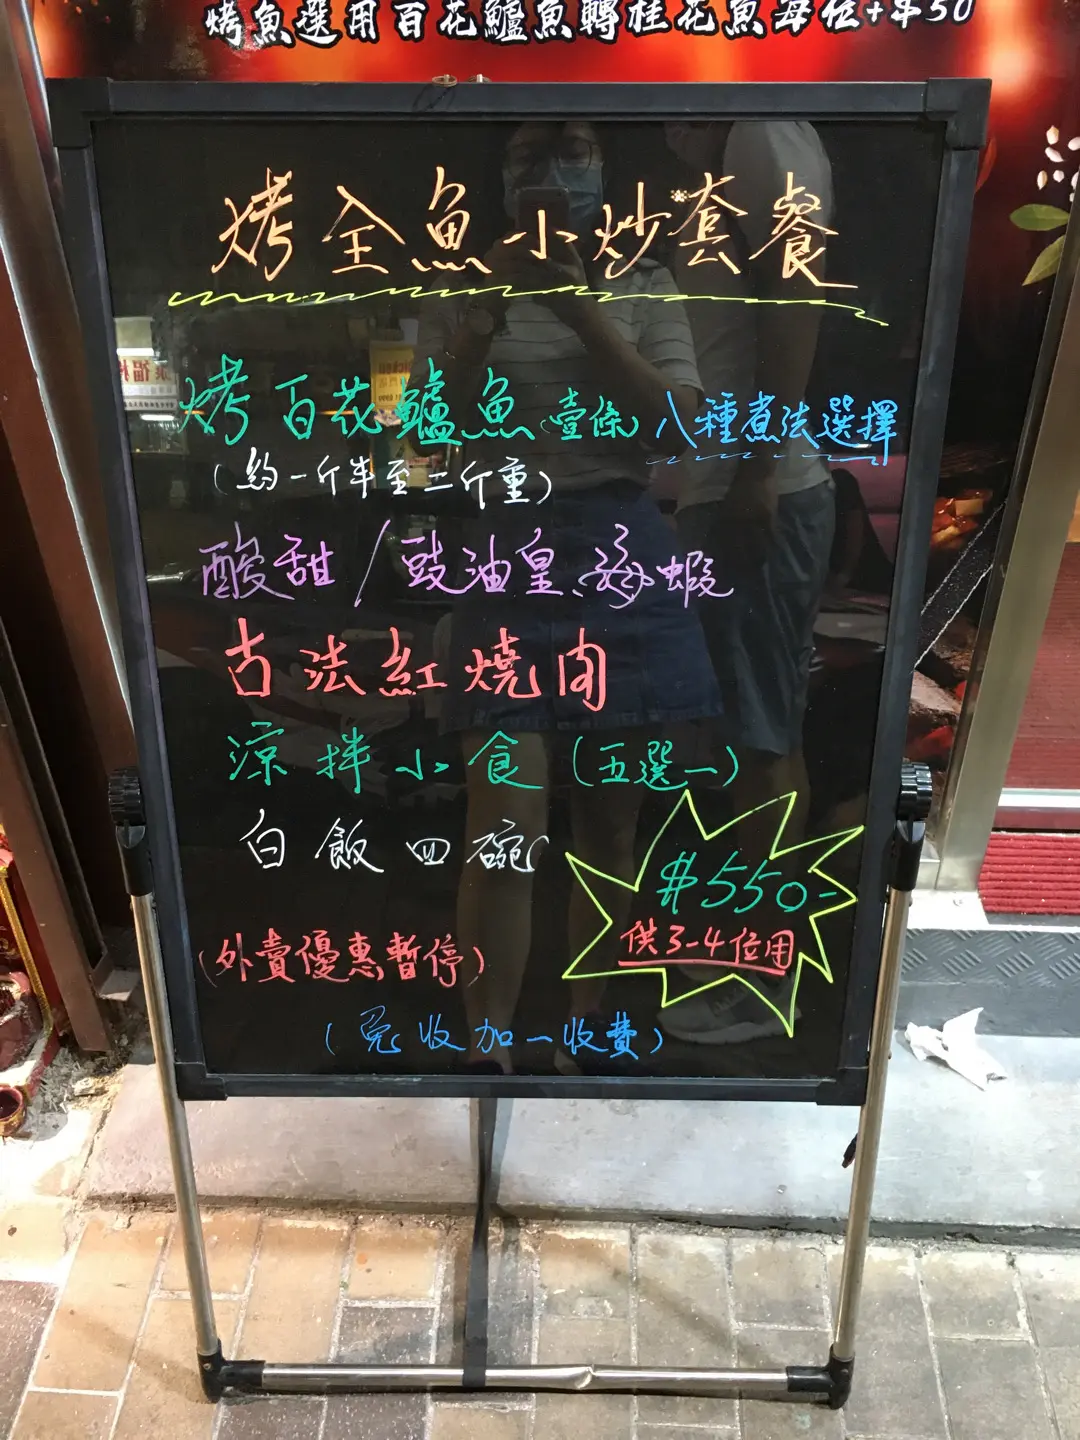 烤魚選用百花鱸魚轉桂花魚每位+$50
烤全魚小炒套餐
烤百花鱸魚(壹條) 八種煮法選擇
(約一斤半至二斤重)
酸甜/豉油皇海蝦
古法紅燒肉
涼拌小食(五選一)
白飯四碗
$550-
供3-4位用
(外賣優惠暫停)
(免收加一收費)